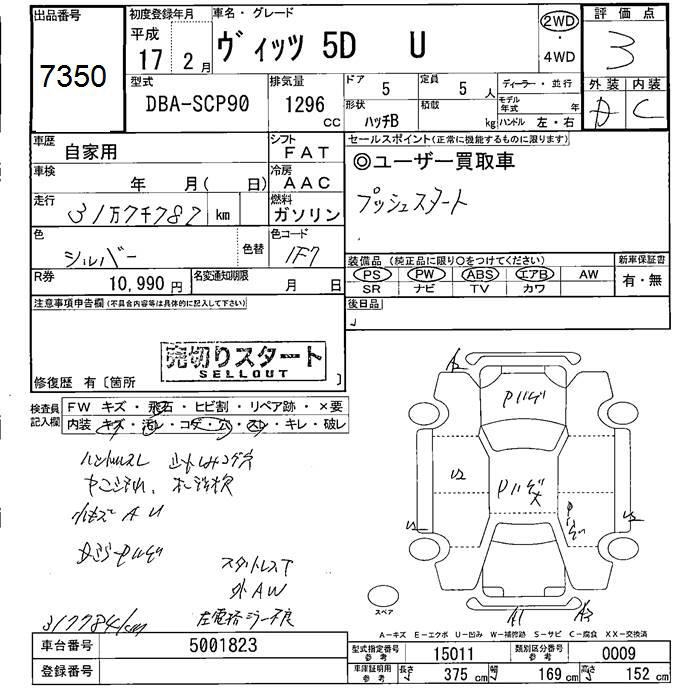 出品番号
7350
初度登録年月
平成
17 2月
車名・グレード
ヴィッツ 5D U
2WD
・
4WD
評価点
3
型式
DBA-SCP90
排気量
1296
cc
ドア
5
定員
5 人
ディーラー・並行
モデル年式 年
形状
ハッチB
積載
kg
ハンドル 左・右
外装 内装
D C
車歴
自家用
シフト
FAT
セールスポイント(正常に機能するものに限ります)
◎ユーザー買取車
プッシュスタート
車検
年 月( 日)
冷房
AAC
走行
31万7千782 km
燃料
ガソリン
色
シルバー
色替
色コード
1F7
装備品 (純正品に限り○をつけてください)
PS PW ABS エアB AW
SR ナビ TV カワ
新車保証書
有・無
R券
10,990円
名変通知期限
月 日
後日品
注意事項申告欄(不具合内容等は具体的に記入して下さい)
売切りスタート
SELLOUT
修復歴 有〔箇所 〕
検査員
記入欄
FW キズ・飛石・ヒビ割・リペア跡・×要
内装 キズ・汚レ・コゲ・穴・スレ・キレ・破レ
ハンドルスレ
小キズ A U
スタットレスT
外AW
左電格ミラー不良
317784km
A2
U2
U2
U2
A1
スペア
A-キズ E-エクボ U-凹み W-補修跡 S-サビ C-腐食 XX-交換済
車台番号
5001823
登録番号
型式指定番号
参考
15011
類別区分番号
参考
0009
車庫証明用
参考
長さ 375 cm
幅 169 cm
高さ 152 cm